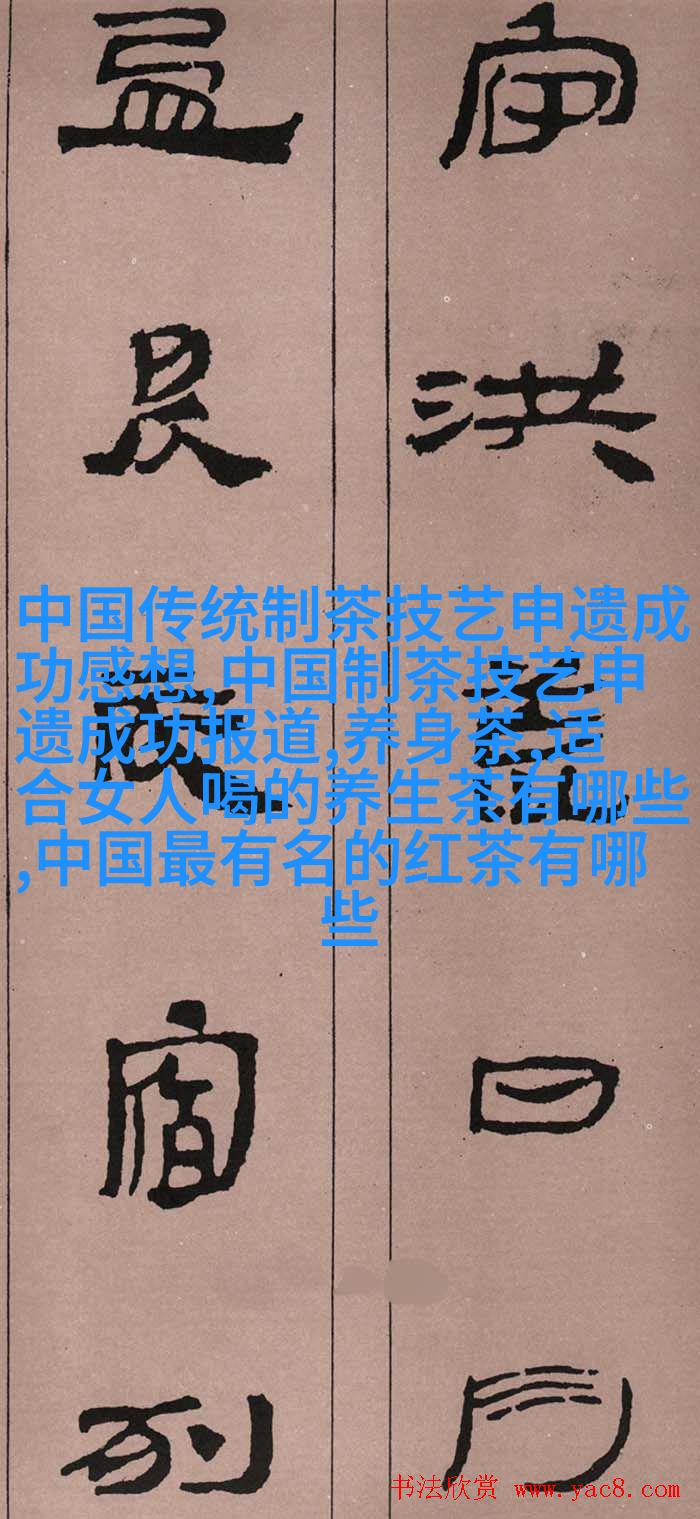 宙洪荒日月
盈昃辰宿列
中国传统制茶技艺申遗成
功感想,中国制茶技艺申
遗成功报道,养身茶,适
合女人喝的养生茶有哪些
,中国最有名的红茶有哪
些
书法欣赏 www.yac8.com